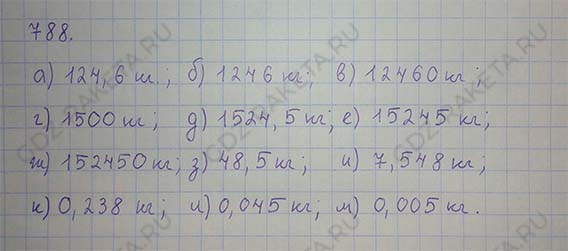 788.
а) 124,6 кг.; б) 1246 кг; в) 12460 кг;
г) 1500 кг; д) 1524,5 кг; е) 15245 кг;
ж) 152450 кг; з) 48,5 кг; и) 7,548 кг;
к) 0,238 кг; л) 0,045 кг; м) 0,005 кг.
GDZ-RAKETA.RU